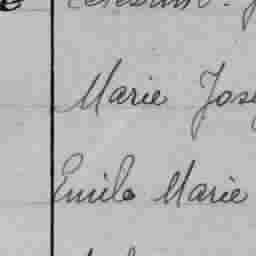 Marie Jos
Emile Marie